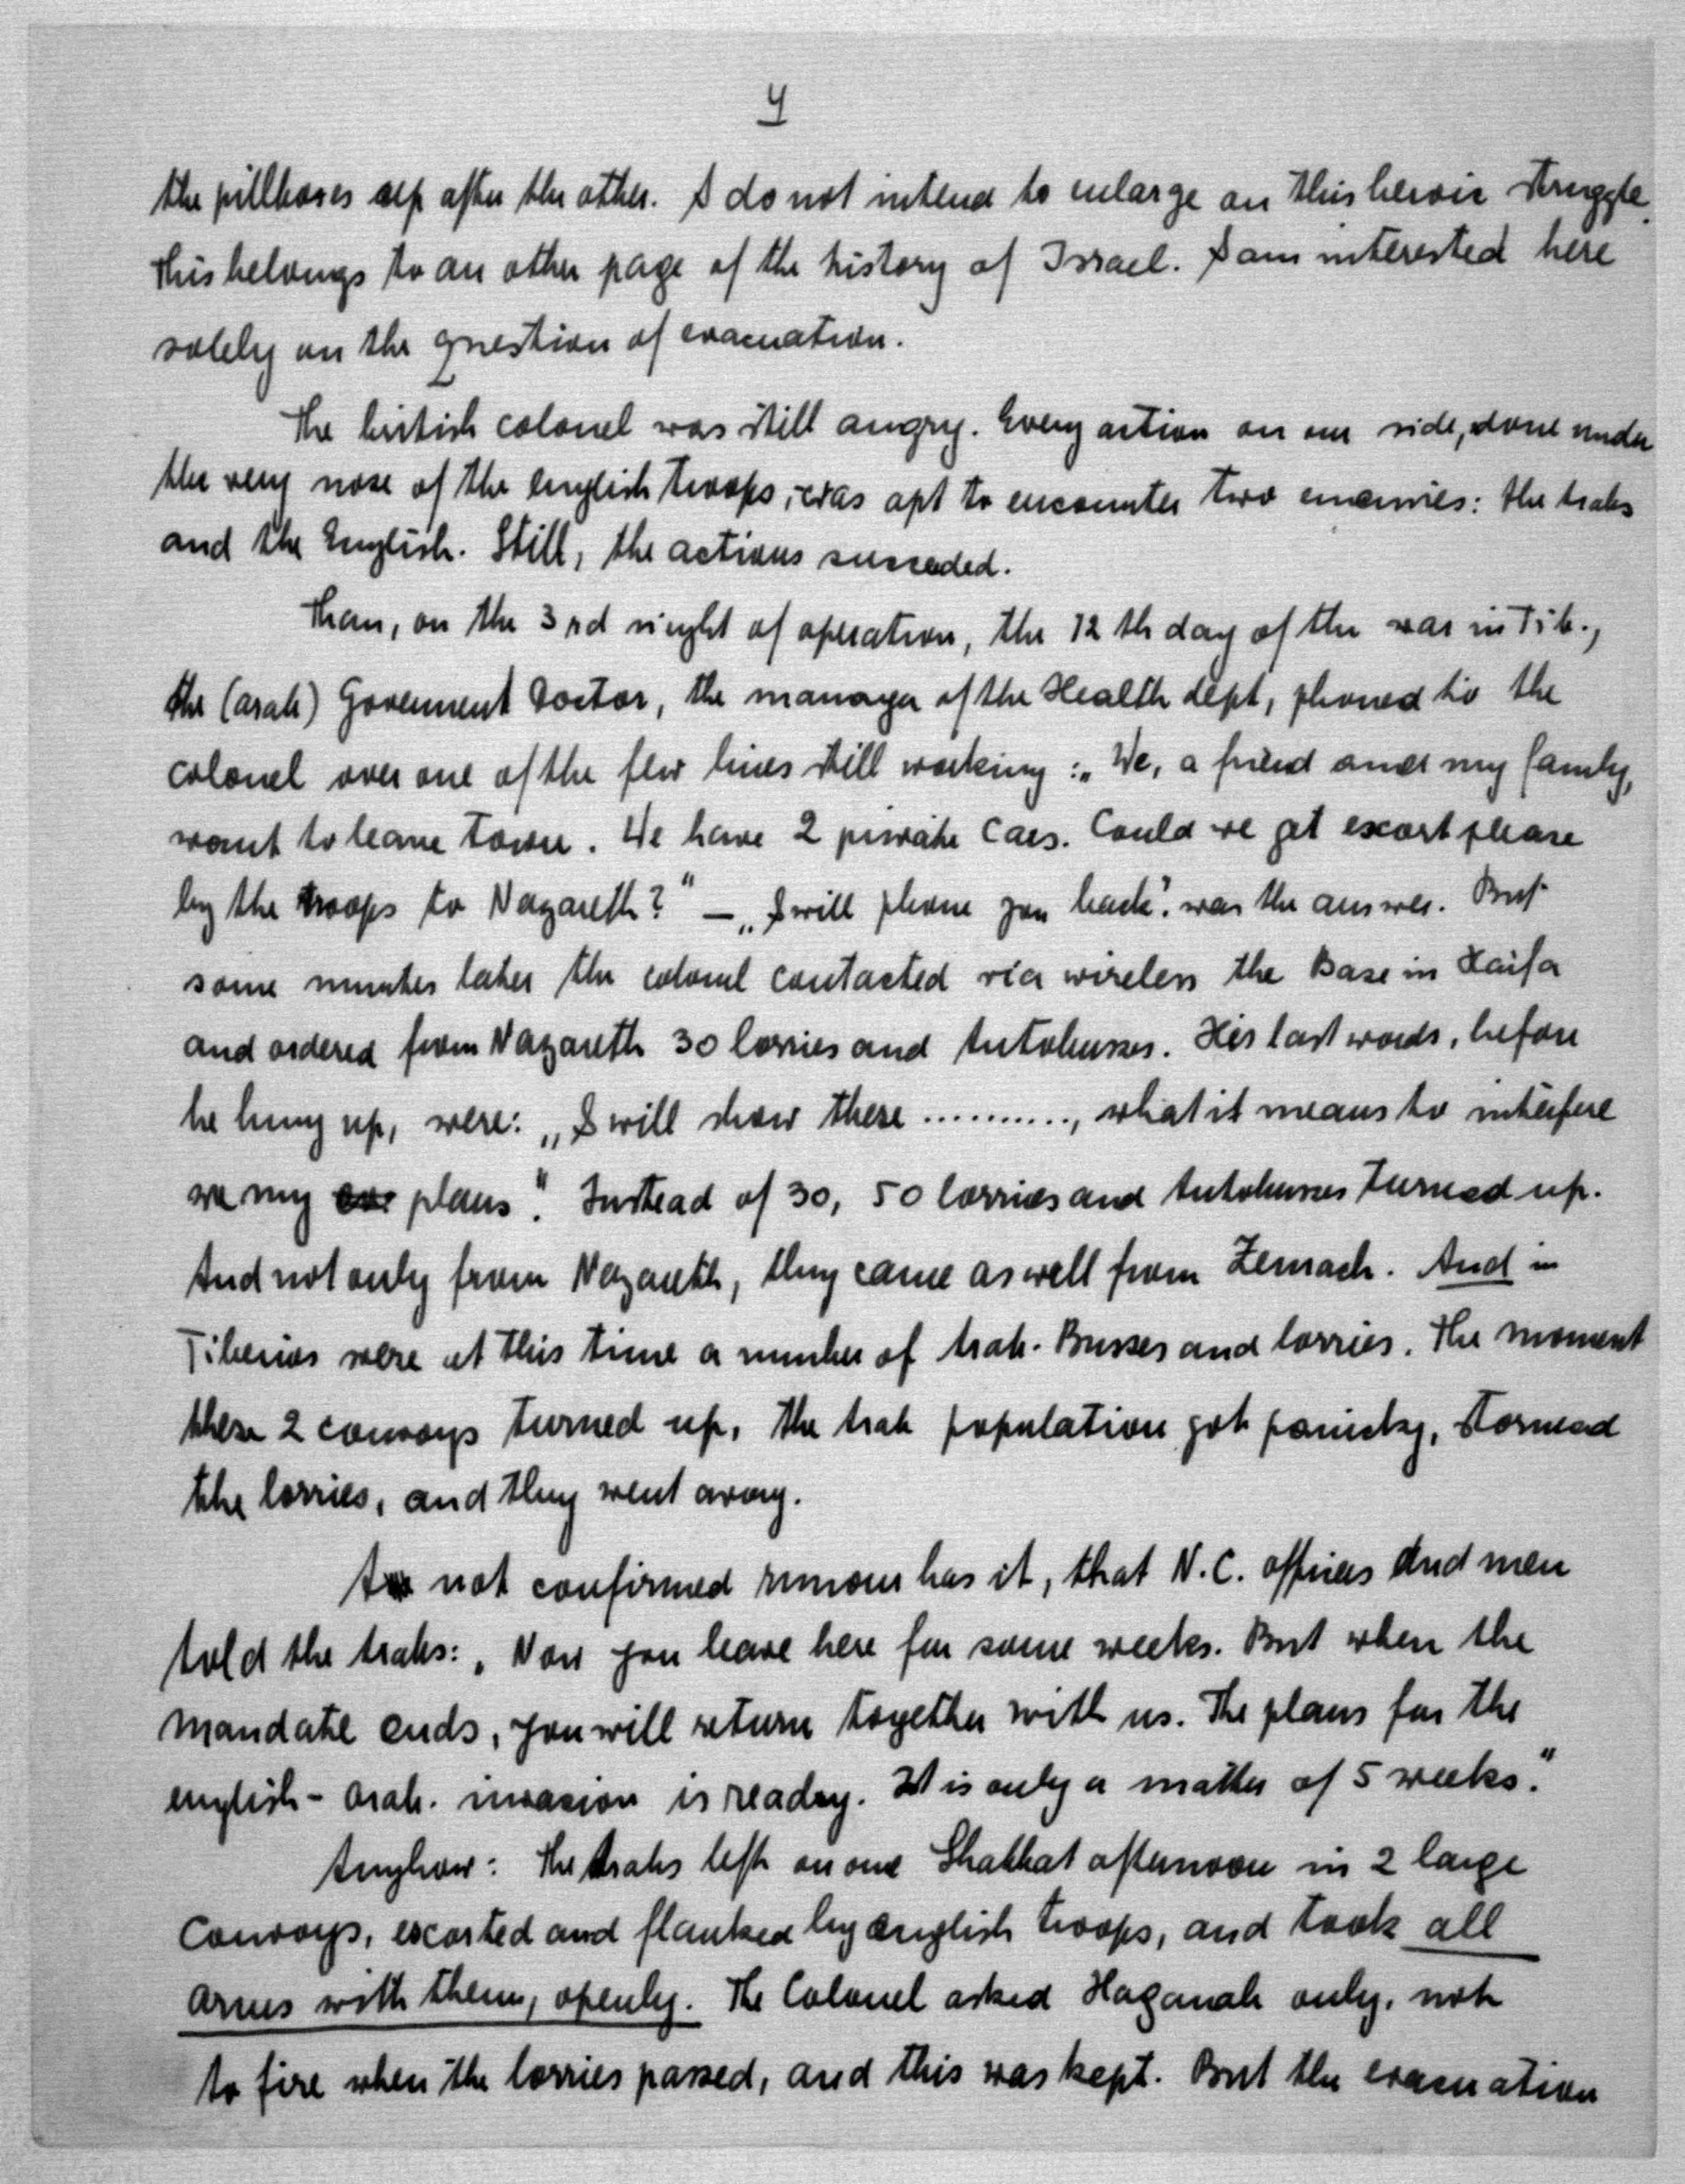 4
the pillboxes after the other. I do not intend to enlarge on this heroic struggle.
This belongs to an other page of the history of Israel. I am interested here
solely on the question of evacuation.
The british colonel was still angry. Every action on our side, done under
the very nose of the english troops, was apt to encounter two enemies: the Arabs
and the English. Still, the actions succeded.
Than, on the 3rd night of operation, the 12th day of the war in Tib.,
the (arab) Goverment Doctor, the manager of the Health dept, phoned to the
colonel over one of the few lines still working: „We, a friend and my family,
want to leave town. We have 2 private cars. Could we get escort please
by the troops to Nazareth?" — „I will phone you back". was the answer. But
some minutes later the colonel contacted via wireless the Base in Haifa
and ordered from Nazareth 30 lorries and Autobusses. His last words, before
he hung up, were: „I will show these .........., what it means to interfere
my plans". Instead of 30, 50 lorries and Autobusses turned up.
And not only from Nazareth, they came as well from Zemach. And in
Tiberias were at this time a number of Arab. Busses and lorries. The moment
these 2 convoys turned up, the Arab population got panicky, stormed
the lorries, and they went away.
A not confirmed rumour has it, that N.C. officers and men
told the Arabs: „Now you leave here for some weeks. But when the
mandate ends, you will return together with us. The plans for the
english - arab. invasion is ready. It is only a matter of 5 weeks."
Anyhow: The Arabs left on one Shabbat afternoon in 2 large
convoys, escorted and flanked by english troops, and took all
arms with them, openly. The Colonel asked Haganah only, not
to fire when the lorries passed, and this was kept. But the evacuation